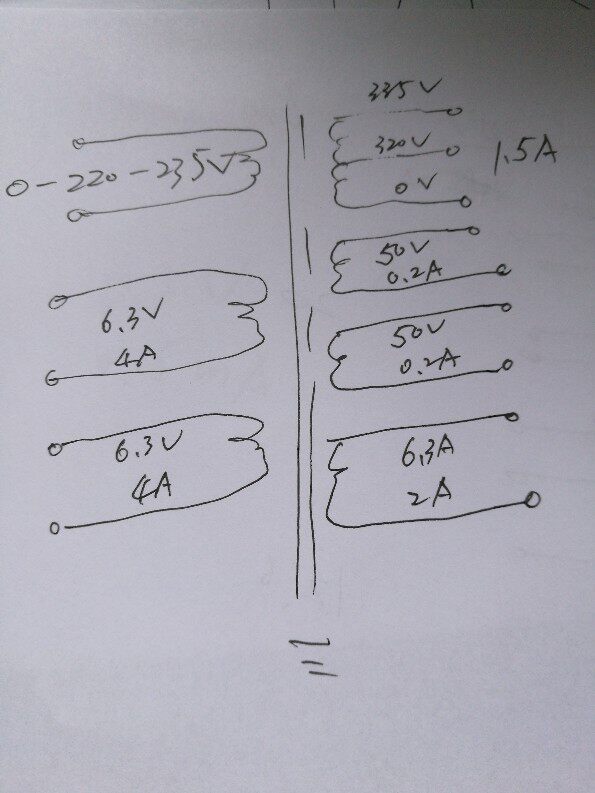 0-220-235V
6.3V
4A
6.3V
4A
335V
320V
0V
1.5A
50V
0.2A
50V
0.2A
6.3A
2A